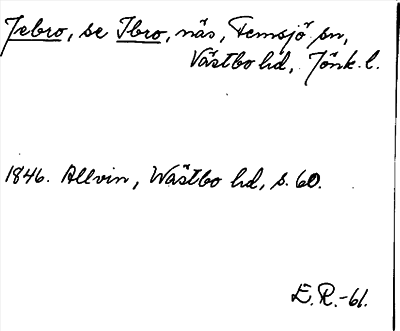 Jebro, se Ibro, näs, Femsjö sn,
Västbo hd, Jönk. l.
1846. Allvin, Wästbo hd, s. 60.
E. R. -61.